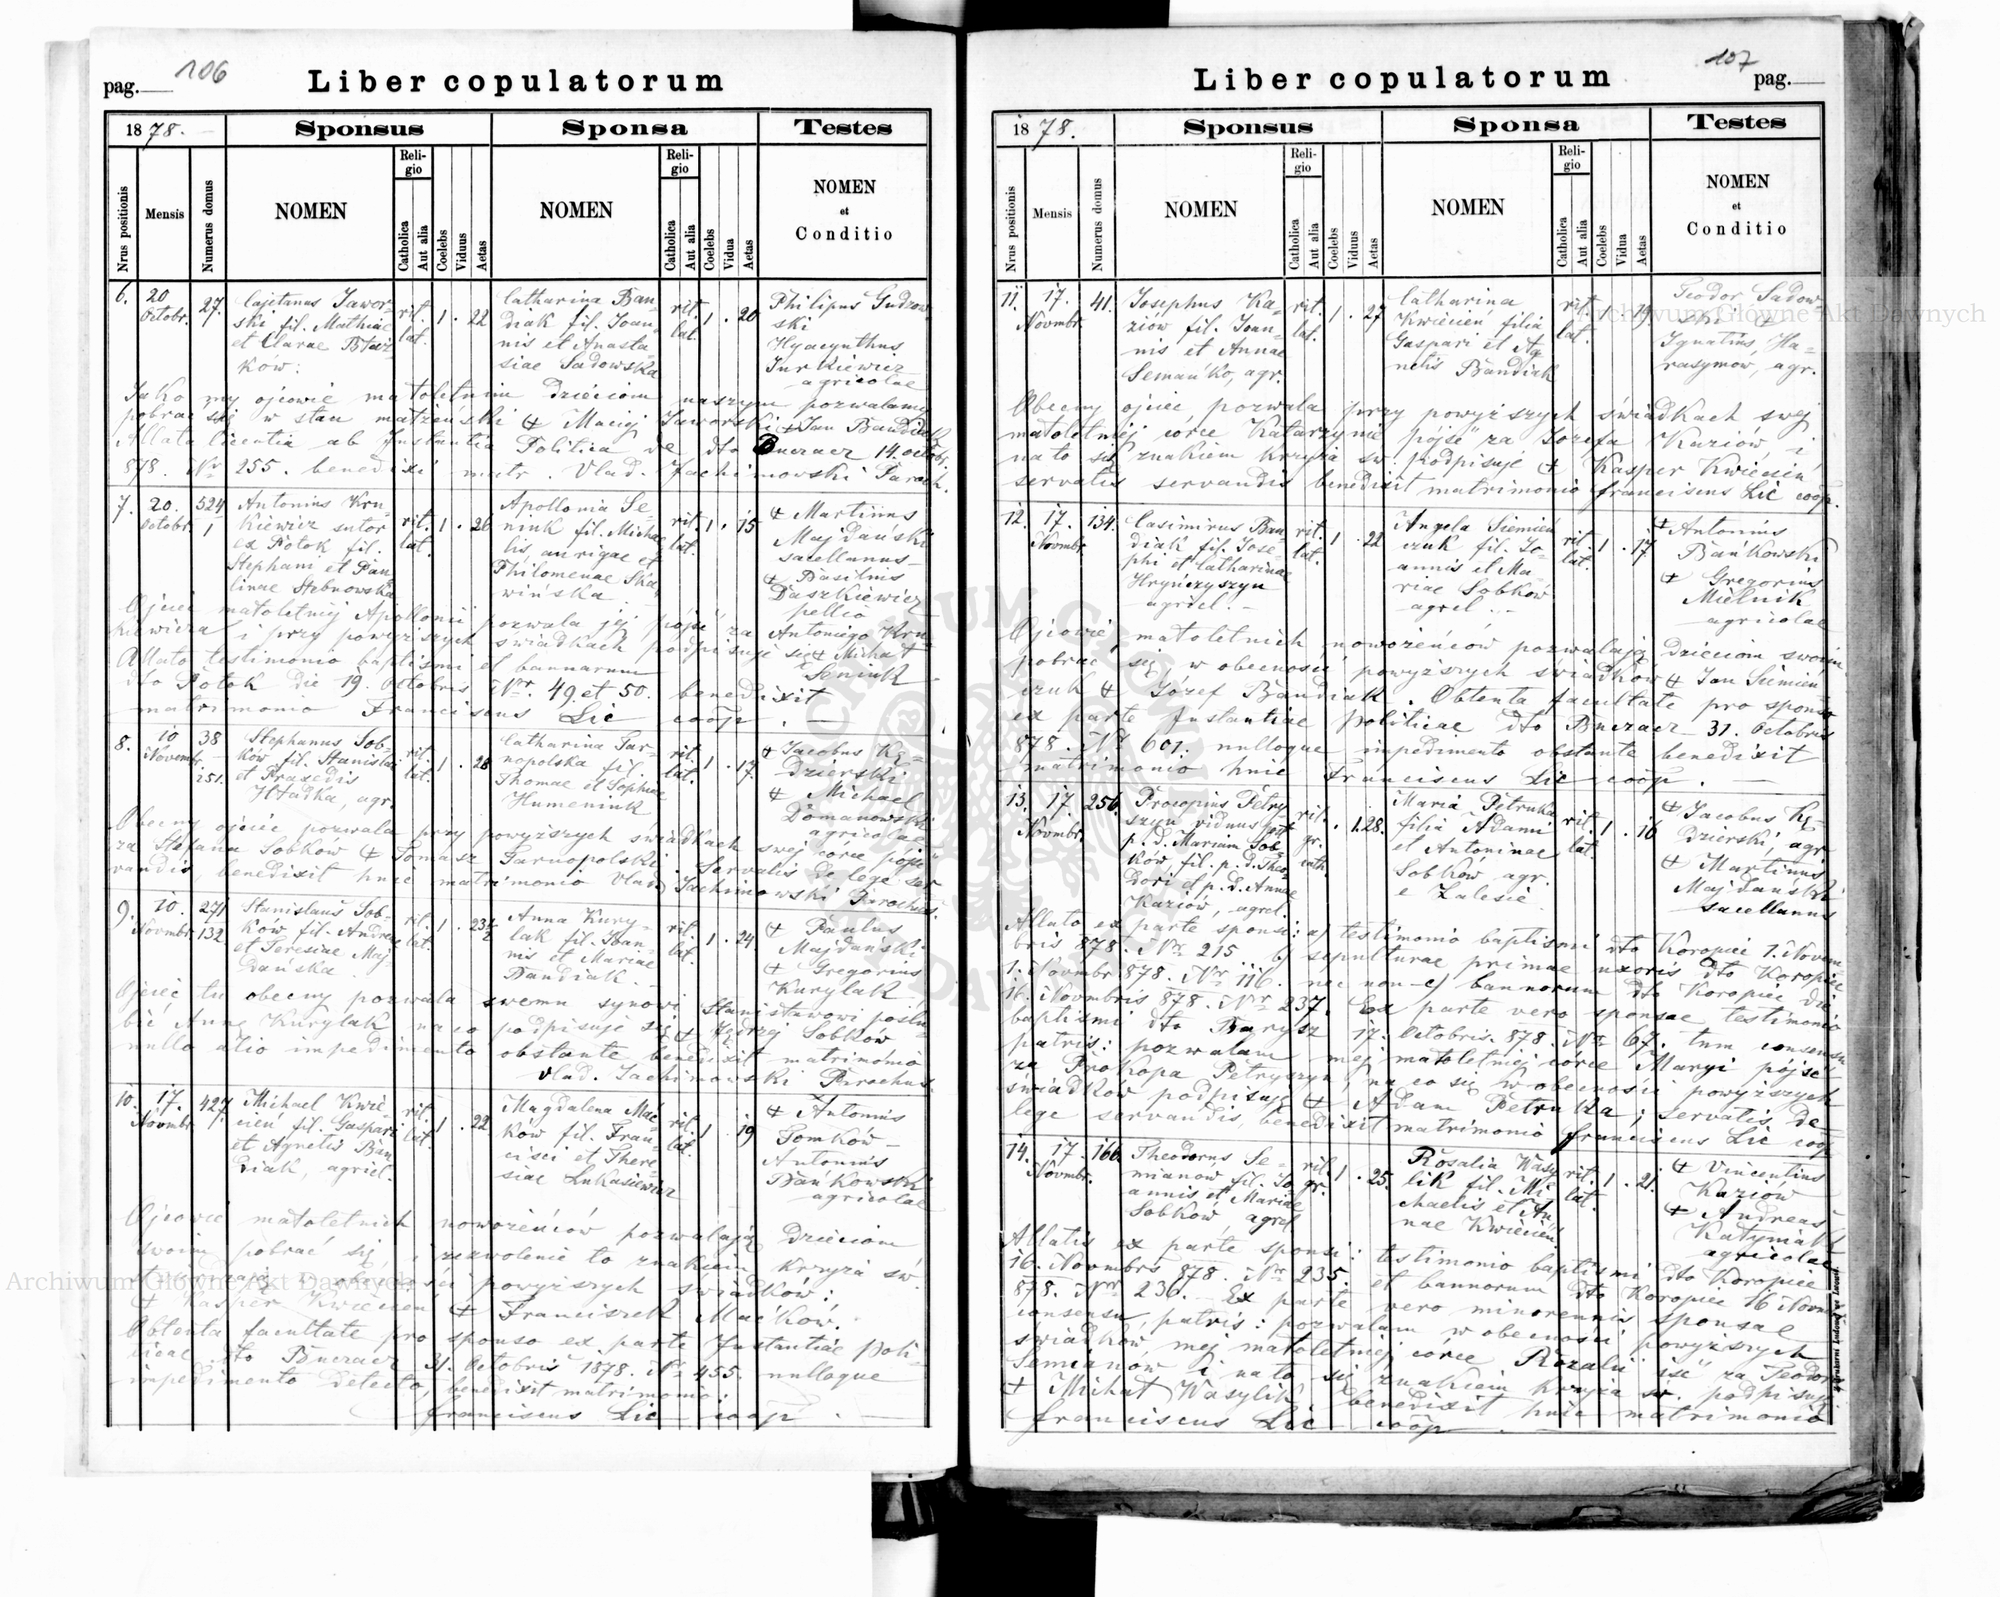 pag. 106
Liber copulatorum
1878.
Sponsus
Sponsa
Testes
Nrus positionis
Mensis
Numerus domus
NOMEN
Religio
Catholica
Aut alia
Coelebs
Viduus
Aetas
NOMEN
Religio
Catholica
Aut alia
Coelebs
Vidua
Aetas
NOMEN
et
Conditio
6. 20 Octobr. 27.
Cajetanus Jawor-
ski fil. Mathiae
et Clarae Błaż
ków.
rit. lat. 1 . 22
Catharina Ban-
diak fil. Joan-
nis et Anasta-
siae Sadowska
rit. lat. 1 . 20
Philipus Gudzow-
ski
Hyacynthus
Jurkiewicz
agricolae
Jako my ojcowie małoletnim dzieciom naszym pozwalamy
pobrać się w stan małżeński + Maciej Jaworski + Jan Bandiak
Allata licentia ab Instantia Politica de dto Buczacz 14. octobr.
878. Nr 255. benedixi matr. Vlad. Jachimowski Paroch.
7. 20. Octobr. 524 1
Antonius Kru
kiewicz sutor
ex Potok fil.
Stephani et Pau
linae Stebnowska
rit. lat. 1 . 26
Apollonia Se-
niuk fil. Micha
lis, aurigae et
Philomenae Ska
wińska
rit. lat. 1 . 15
+ Martinus
Majdański
sacellanus
+ Basilius
Daszkiewicz
pellio
Ojciec małoletniej Apollonii pozwala jej pójść za Antoniego Kru
kiewicza i przy powyższych świadkach podpisuje się + Michał
Allato testimonio baptismi et bannorum Seniuk
dto Potok die 19. Octobris Nr. 49 et 50. benedixit
matrimonio Franciscus Lic coop.
8. 10 Novembr. 38 151.
Stephanus Sob-
ków fil. Stanislai
et Praxedis
Hładka, agr.
rit. lat. 1 . 28
Catharina Tar-
nopolska fil.
Thomae et Sophiae
Humeniuk
rit. lat. 1 . 17.
+ Jacobus Kę-
dzierski
+ Michael
Domanowski
agricolae
Obecny ojciec pozwala przy powyższych świadkach swej córce pójść
za Stefana Sobków + Tomasz Tarnopolski. Servatis de lege ser
vandis, benedixit huic matrimonio Vlad Jachimowski Parochus.
9. 10. Novmbr. 271 132
Stanislaus Sob-
ków fil. Andreae
et Teresiae Maj-
dańska.
rit. lat. 1 . 23½
Anna Kury-
lak fil. Joan-
nis et Mariae
Bandiak.
rit. lat. 1 . 24.
+ Paulus
Majdański
+ Gregorius
Kurylak
Ojciec tu obecny pozwala swemu synowi Stanisławowi poślu-
bić Annę Kurylak na co podpisuje się + Jędrzej Sobków
nullo alio impedimento obstante benedixit matrimonio
Vlad. Jachimowski Parochus.
10. 17. Novmbr 427.
Michael Kwie-
cień fil. Gaspari
et Agnetis Ban
diak, agricl.
rit. lat. 1 . 22
Magdalena Mać
ków fil. Fran-
cisci et There-
siae Łukasiewicz
rit. lat. 1 . 19
+ Antonius
Tomków
Antonius
Bańkowski
agricolae
Ojcowie małoletnich nowożeńców pozwalają dzieciom
swoim pobrać się i zezwolenie to znakiem krzyża św.
powyższych świadków:
+ Kasper Kwiecień + Franciszek Maćków.
Obtenta facultate pro sponso ex parte Instantiae poli-
ticae dto Buczacz 31. Octobris 1878. Nr 455. nulloque
impedimento detecto, benedixit matrimonio:
Franciscus Lic coop.
107 pag.
Liber copulatorum
1878.
Sponsus
Sponsa
Testes
Nrus positionis
Mensis
Numerus domus
NOMEN
Religio
Catholica
Aut alia
Coelebs
Viduus
Aetas
NOMEN
Religio
Catholica
Aut alia
Coelebs
Vidua
Aetas
NOMEN
et
Conditio
11. 17. Novmbr. 41.
Josephus Ka-
ziów fil. Joan-
nis et Annae
Semańko, agr.
rit. lat. 1 . 27
Catharina
Kwiecień filia
Gaspari et Ag
netis Bandiak
rit. lat. 19.
Teodor Sadow-
ski +
Ignatius Ha-
rasymów, agr.
Obecny ojciec, pozwala przy powyższych świadkach swej
małoletniej córce Katarzynie pójść za Józefa Kaziów, i
na to się znakiem krzyża św. podpisuje + Kasper Kwiecień
servatis servandis benedixit matrimonio Franciscus Lic coop.
12. 17. Novmbr. 134.
Casimirus Ban
diak fil. Jose-
phi et Catharinae
Hryńczyszyn
agricl.
rit. lat. 1 . 22
Angela Siemień
czuk fil. Jo-
annis et Ma-
riae Sobków
agricl.
rit. lat. 1 . 17
+ Antonius
Bańkowski
+ Gregorius
Mielnik
agricolae
Ojcowie małoletnich nowożeńców pozwalają dzieciom swoim
pobrać się w obecności powyższych świadków + Jan Siemień-
czuk + Józef Bandiak. Obtenta facultate pro sponso
ex parte Instantiae politicae dto Buczacz 31. Octobris
878. Nr 601. nulloque impedimento obstante benedixit
matrimonio huic Franciscus Lic coop.
13. 17. Novmbr. 256.
Procopius Petry-
szyn viduus post
p. d. Mariam Sob-
ków, fil. p. d. Theo
dori et p. d. Annae
Kaziów, agrcl.
rit. gr. cath. . 1. 28.
Maria Petruka
filia Adami
et Antoninae
Sobków agr.
e Zalesie
rit. lat. 1 . 16
+ Jacobus Kę-
dzierski, agr
+ Martinus
Majdański
sacellanus
Allato ex parte sponsi: a) testimonio baptismi dto Koropiec 1. Novem
bris 878. Nr 215. b) sepulturae primae uxoris dto Koropiec
1. Novmbr 878. Nr 116. nec non c) bannorum dto Koropiec die
16. Novmbris 878. Nr 237. Ex parte vero sponsae testimonio
baptismi dto Barysz 17. Octobris. 878. Nr 67. tum consensu
patris: pozwalam mej małoletniej córce Maryi pójść
za Prokopa Petryszyn, na co się w obecności powyższych
świadków podpisuję + Adam Petruka; servatis de
lege servandis, benedixit matrimonio Franciscus Lic coop
14. 17. Novmbr. 166.
Theodorus Se-
mianów fil. Jo
annis et Mariae
Sobków, agrcl
rit. gr. 1 . 25.
Rosalia Wasy
lik fil. Mi
chaelis et An
nae Kwiecień
rit. lat. 1 . 21.
+ Vincentius
Kaziów
+ Andreas
Katyniak
agricolae
Allatis ex parte sponsi: testimonio baptismi dto Koropiec
16. Novmbris 878. Nr 235. et bannorum dto Koropiec 16 Novmb
878. Nr 236. Ex parte vero minorennis sponsae
consensu, patris: pozwalam w obecności powyższych
świadków, mej małoletniej córce Rozalii iść za Teodora
Semianów i na to się znakiem krzyża św. podpisuję
+ Michał Wasylik, benedixit huic matrimonio
Franciscus Lic coop.
Archiwum Główne Akt Dawnych
Archiwum Główne Akt Dawnych
ARCHIWUM GŁÓWNE AKT DAWNYCH